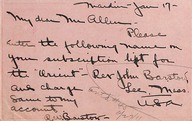 Mardin - Jan 17 -
My dear Mr Allen.
Please
enter the following name on
your subscription list for
the "Orient" - Rev John Barstow
Lee, Mass.
and charge
USA
same to my
account.
Barstow